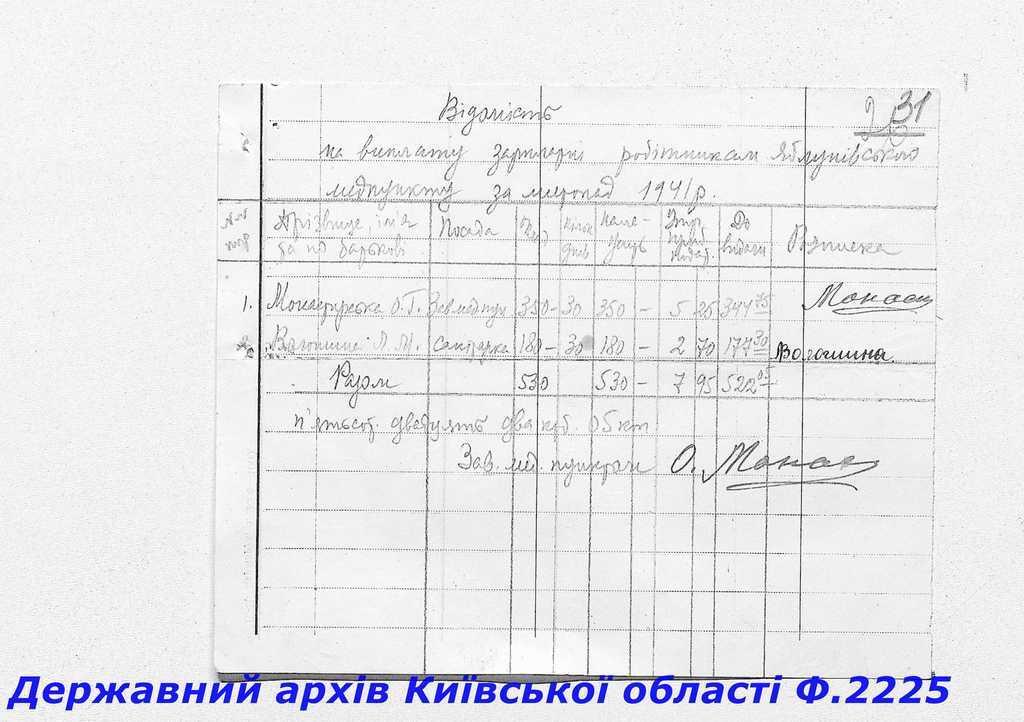 31
Відомість
на виплату зарплатні робітникам Яблунівського
медпункту за листопад 1941 р.
Прізвище, ім'я Посада Кільк. На До Розписка
та по батькові днів видачі
1. Монастирська О. Г. Завмедпун 350 – 30 350 – 5 25 344 75 Монас
2. Волошина Л. М. санітарка 180 – 30 180 – 2 70 177 30 Волошина
Разом 530 530 – 7 95 522 05
п'ятсот двадцять два крб. 05 коп
Зав. мед. пунктом О. Монас
Державний архів Київської області Ф.2225